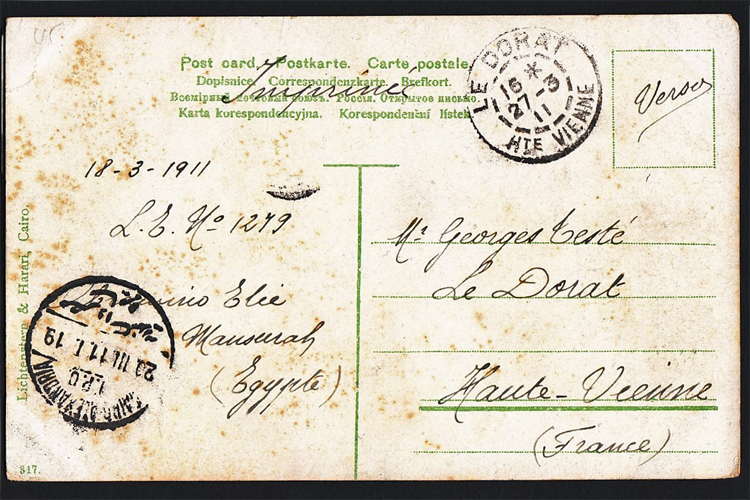 Post card. Postkarte. Carte postale.
Dopisnice. Correspondenzkarte. Brefkort.
Imprimé
Всемірный почтовый союзъ. Россія. Открытое письмо.
Karta korespondencyjna. Korespondenčni listek.
LE DORAT
16 * 3
27-3
11
HTE VIENNE
Verso
18-3-1911
L.E. No 1279
Elie
Mansurah
(Egypte)
Mr Georges Testé
Le Dorat
Haute-Vienne
(France)
Lichtenstern & Harari, Cairo.
20 III 11. T. 19
CAIRO-ALEXANDRIA
T.P.O
817.